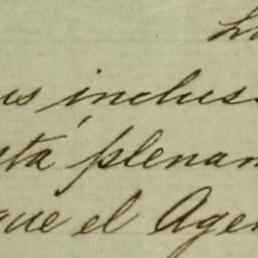 us inclus
sta plenam
que el Agen